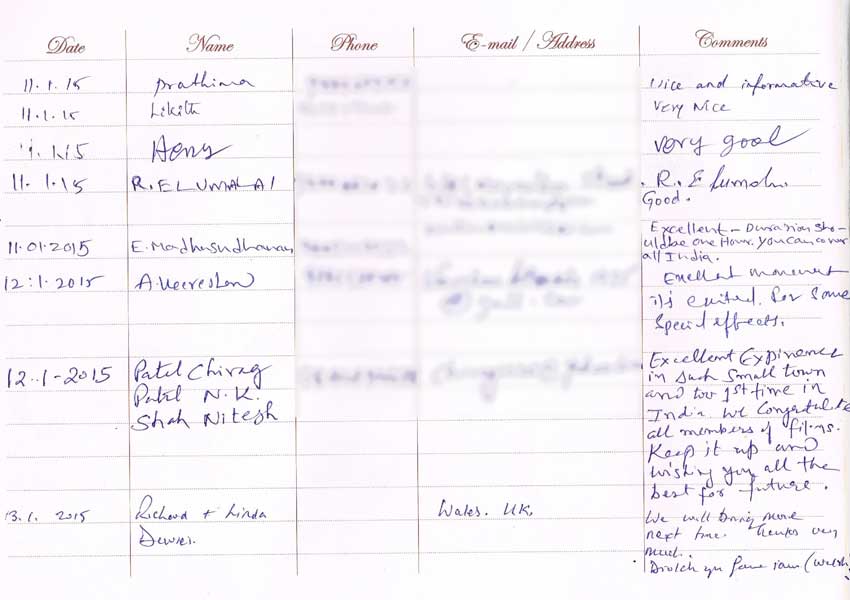 Date Name Phone E-mail / Address Comments
11.1.15 Prathima Nice and informative
11.1.15 Likith Very Nice
11.1.15 Very good
11.1.15 R. ELUMALAI R. Elumalai
Good.
11.01.2015 E. Madhusudhanan Excellent - Duration sho-
uld be one Hour. you can cover
all India.
12.1.2015 Excellent
for some
Special effects.
12.1-2015 Patel Chirag Excellent Expirence
Patel N.K. in such small town
Shah Nitesh and too 1st time in
India. We
all members of
Keep it up and
wishing you all the
best for future.
13.1.2015 Richard + Linda Wales. UK.
We will bring more
next time. Thanks very
much.
(Welsh)